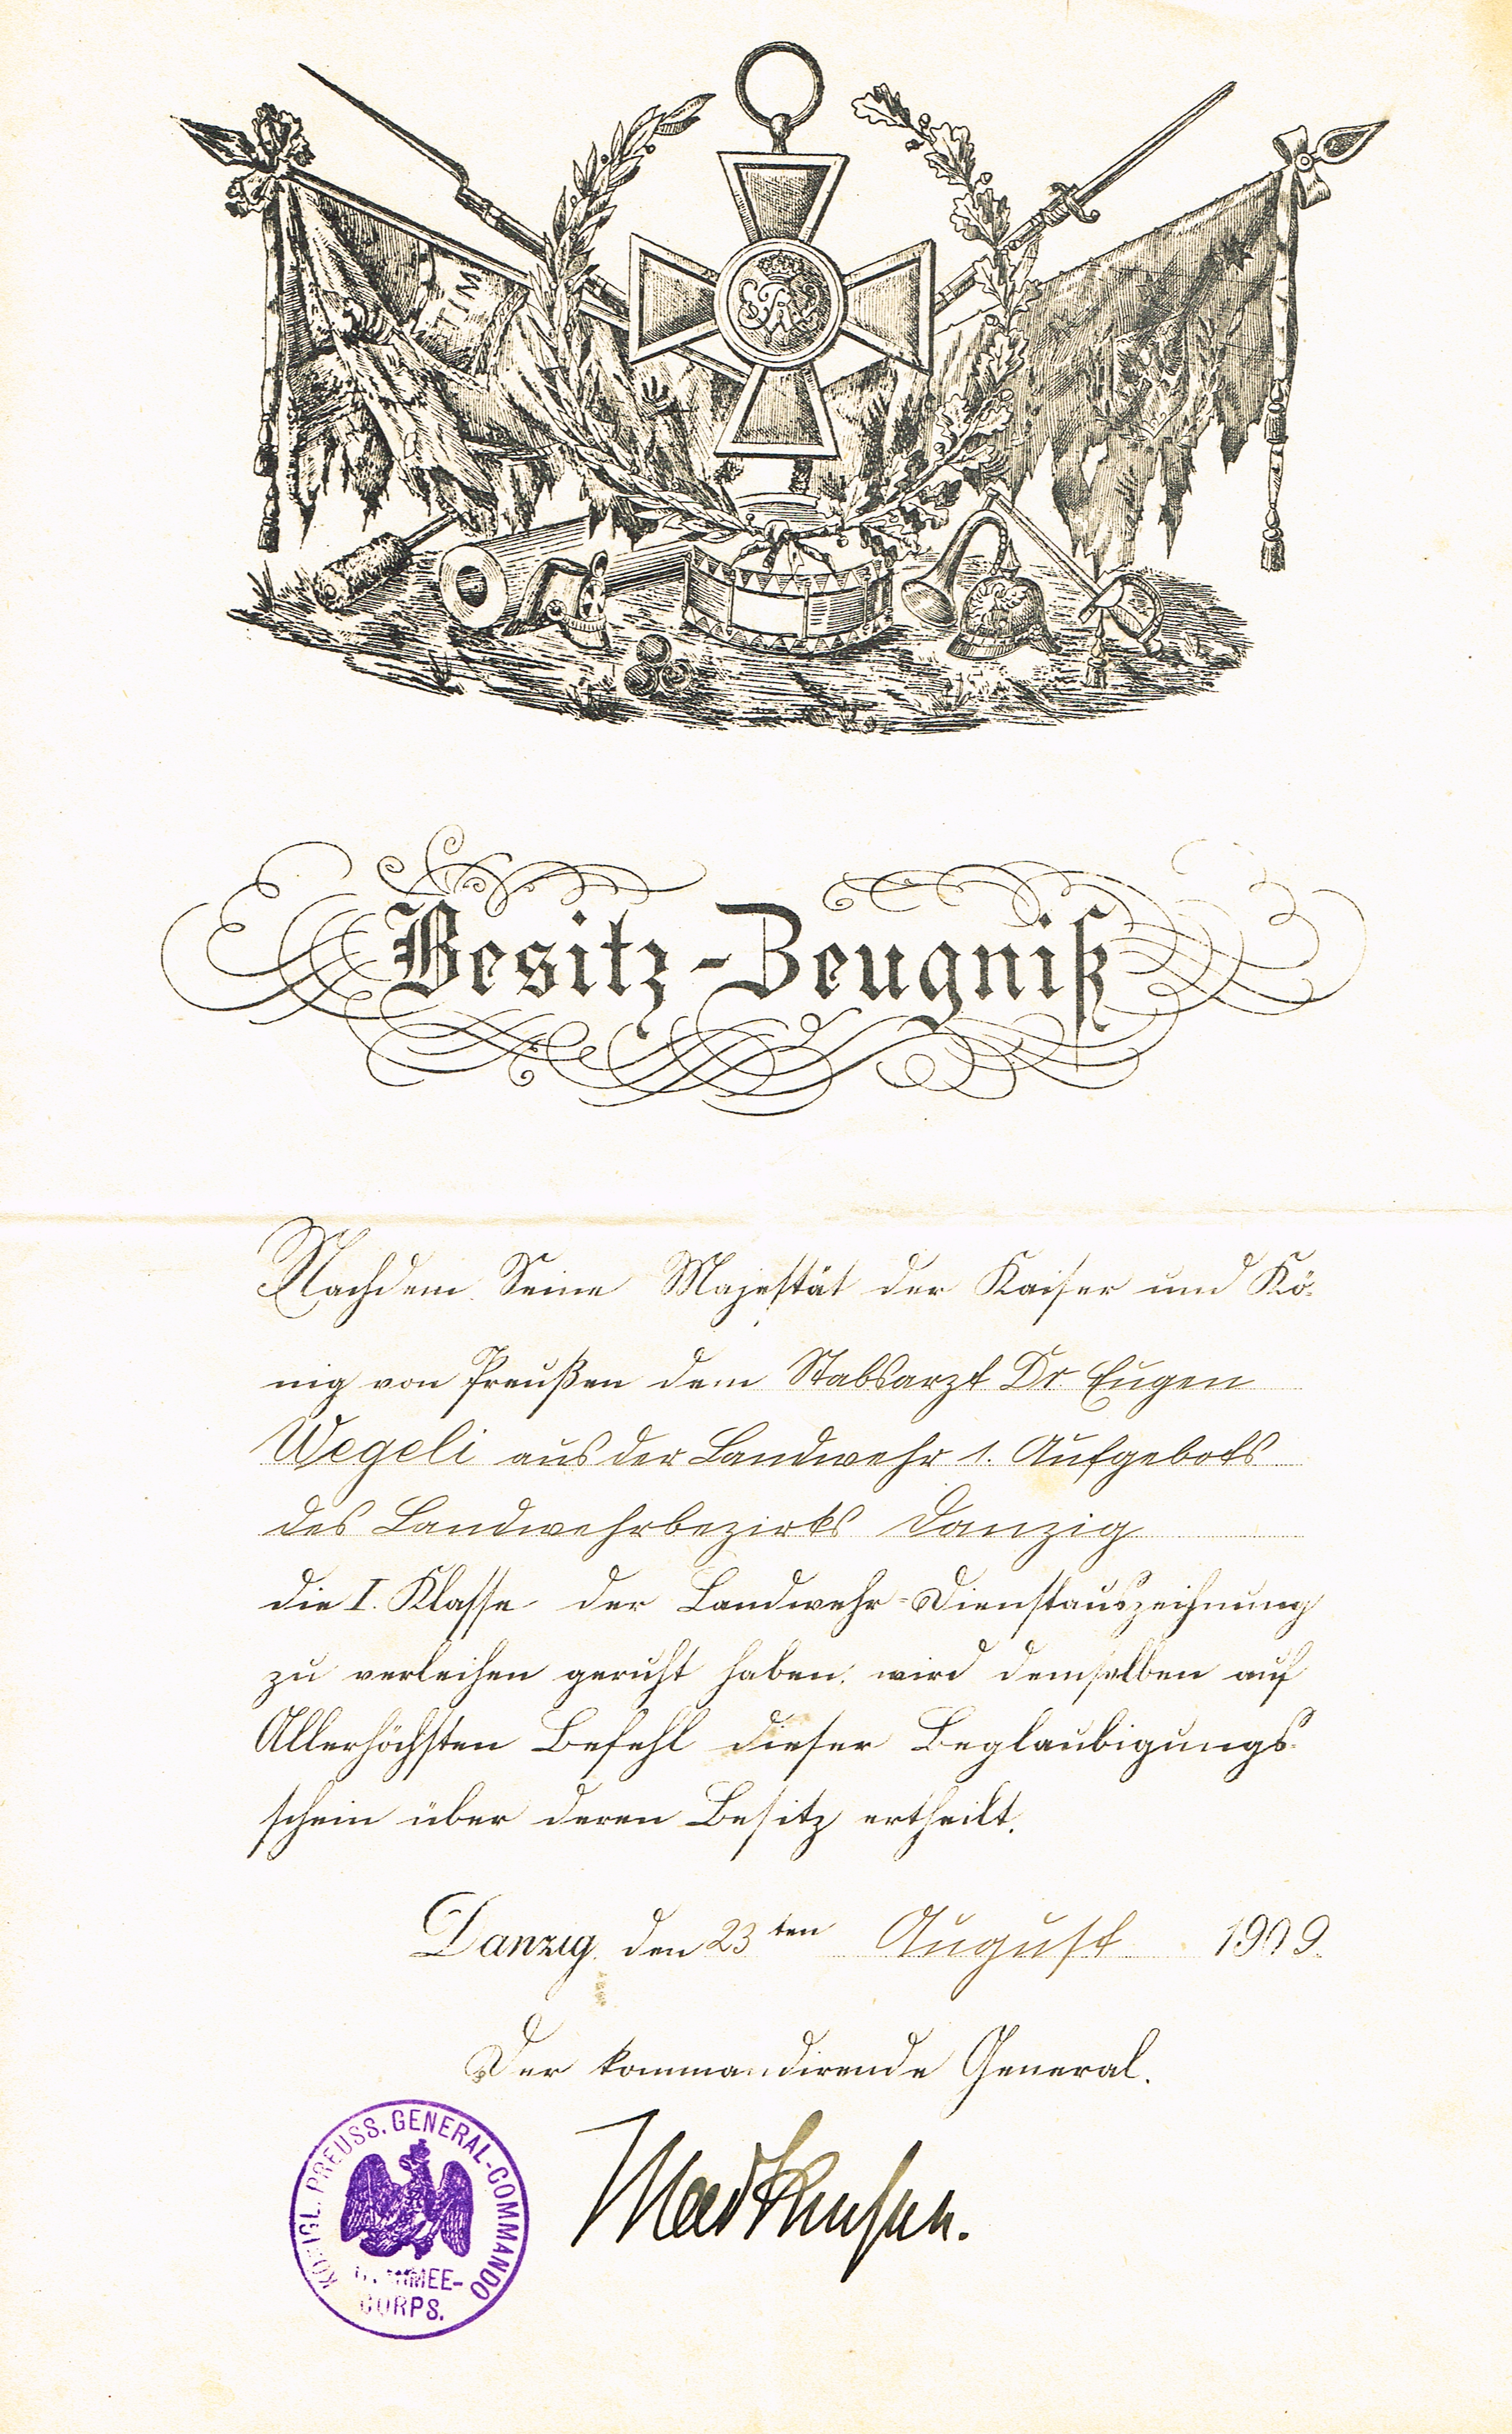 WR
Besitz-Zeugniß
Nachdem Seine Majestät der Kaiser und Kö-
nig von Preußen dem Stabsarzt Dr Eugen
Wegeli aus der Landwehr 1. Aufgebots
des Landwehrbezirks Danzig
die I. Klasse der Landwehr-Dienstauszeichnung
zu verleihen geruht haben, wird demselben auf
Allerhöchsten Befehl dieser Beglaubigungs-
schein über deren Besitz ertheilt.
Danzig, den 23ten August 1909.
Der kommandirende General.
Mackensen.
KÖNIGL. PREUSS. GENERAL-COMMANDO
ARMEE-
CORPS.